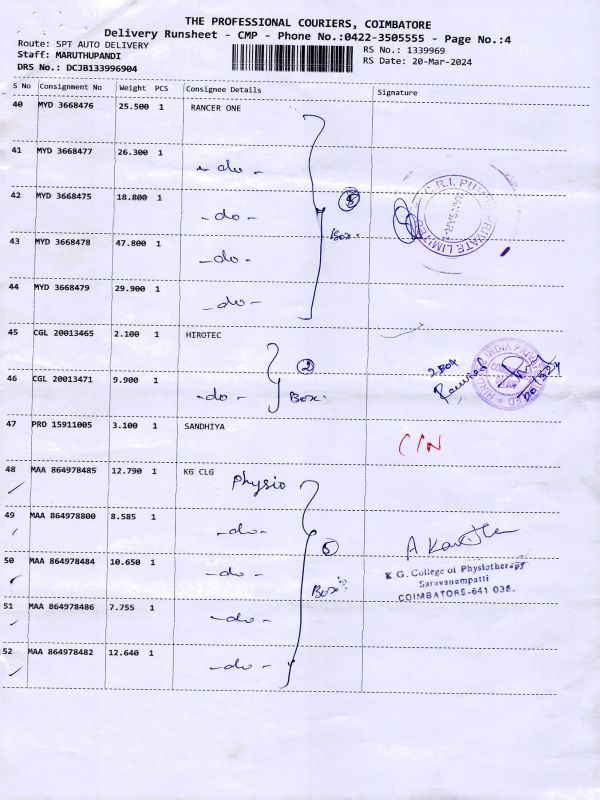 THE PROFESSIONAL COURIERS, COIMBATORE
Delivery Runsheet - CMP - Phone No.:0422-3505555 - Page No.:4
Route: SPT AUTO DELIVERY
RS No.: 1339969
Staff: MARUTHUPANDI
RS Date: 20-Mar-2024
DRS No.: DCJB133996904
S No Consignment No Weight PCS Consignee Details Signature
40 MYD 3668476 25.500 1 RANCER ONE
41 MYD 3668477 26.300 1 -do-
42 MYD 3668475 18.800 1 -do-
5 Box.
43 MYD 3668478 47.800 1 -do-
44 MYD 3668479 29.900 1 -do-
C.R.I. PUMPS PRIVATE LIMITED
45 CGL 20013465 2.100 1 HIROTEC
46 CGL 20013471 9.900 1 -do-
2 Box.
2 Box
Received
20/3/24
47 PRO 15911005 3.100 1 SANDHIYA
C/N
48 MAA 864978485 12.790 1 KG CLG Physio
49 MAA 864978800 8.585 1 -do-
50 MAA 864978484 10.650 1 -do-
5 Box
K G. College of Physiotherapy
Saravanampatti
COIMBATORE-641 035.
51 MAA 864978486 7.755 1 -do-
52 MAA 864978482 12.640 1 -do-